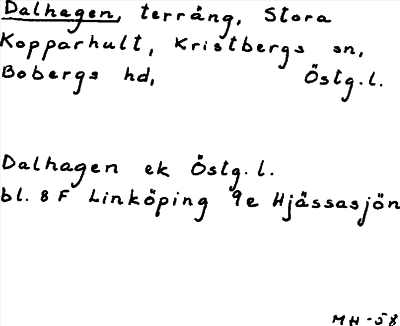 Dalhagen, terräng, Stora
Kopparhult, Kristbergs sn,
Bobergs hd, Östg.l.
Dalhagen ek Östg.l.
bl. 8 F Linköping 9e Hjässasjön
MH -58